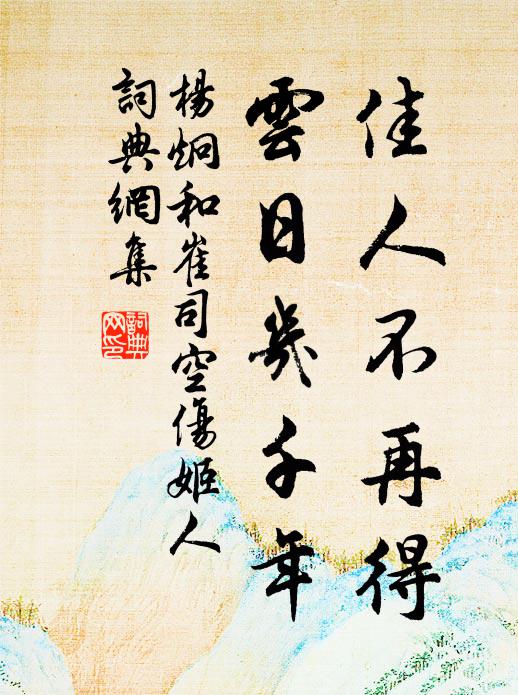 佳人不再得
雲日幾千年
楊炯和崔司空傷姬人
詞典網集
詞典網印